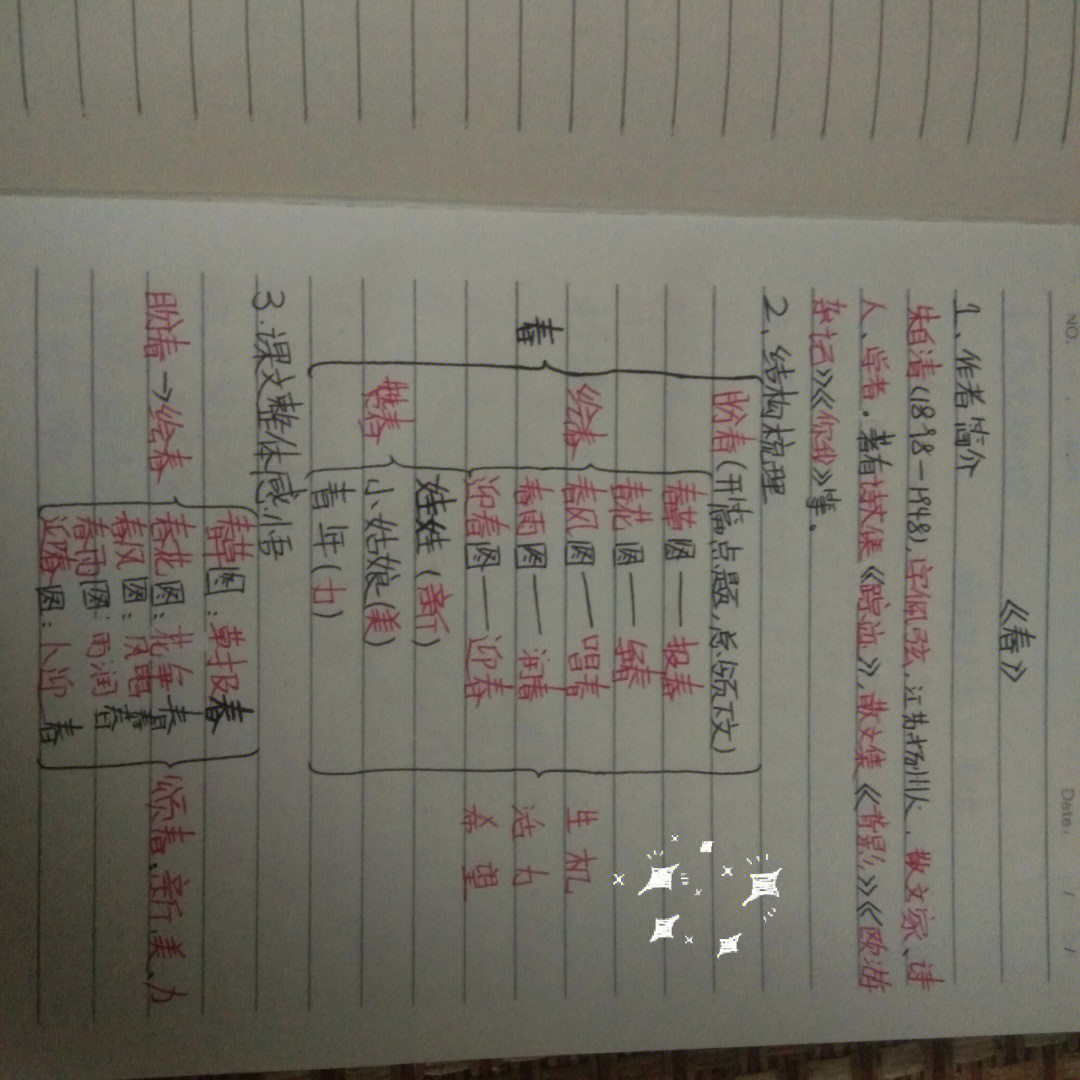 NO.
Date: / /
《春》
1、作者简介
朱自清(1898-1948),字佩弦,江苏扬州人.散文家、诗
人、学者.著有诗文集《踪迹》,散文集《背影》《欧游
杂记》《你我》等.
2、结构梳理
盼春(开篇点题,总领下文)
春草图——报春
春花图——
绘春 春风图——唱春
春 春雨图——润春
迎春图——迎春
娃娃(新)
赞春 小姑娘(美)
青年(力)
生机
活力
希望
3.课文整体感悟
春草图:草报春
春花图:花争春
盼春→绘春 春风图:风唱春 颂春:新、美、力
春雨图:雨润春
迎春图:人迎春